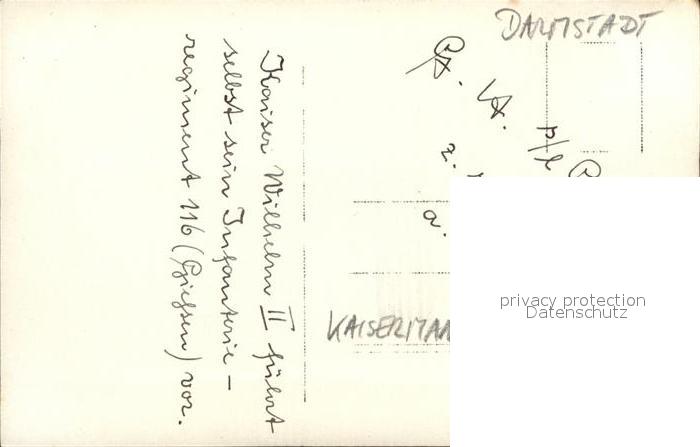 DARMSTADT
Kaiser Wilhelm II führt
selbst sein Infanterie-
regiment 116 (Gießen) vor.
z.
a.
KAISERMAN
privacy protection
Datenschutz